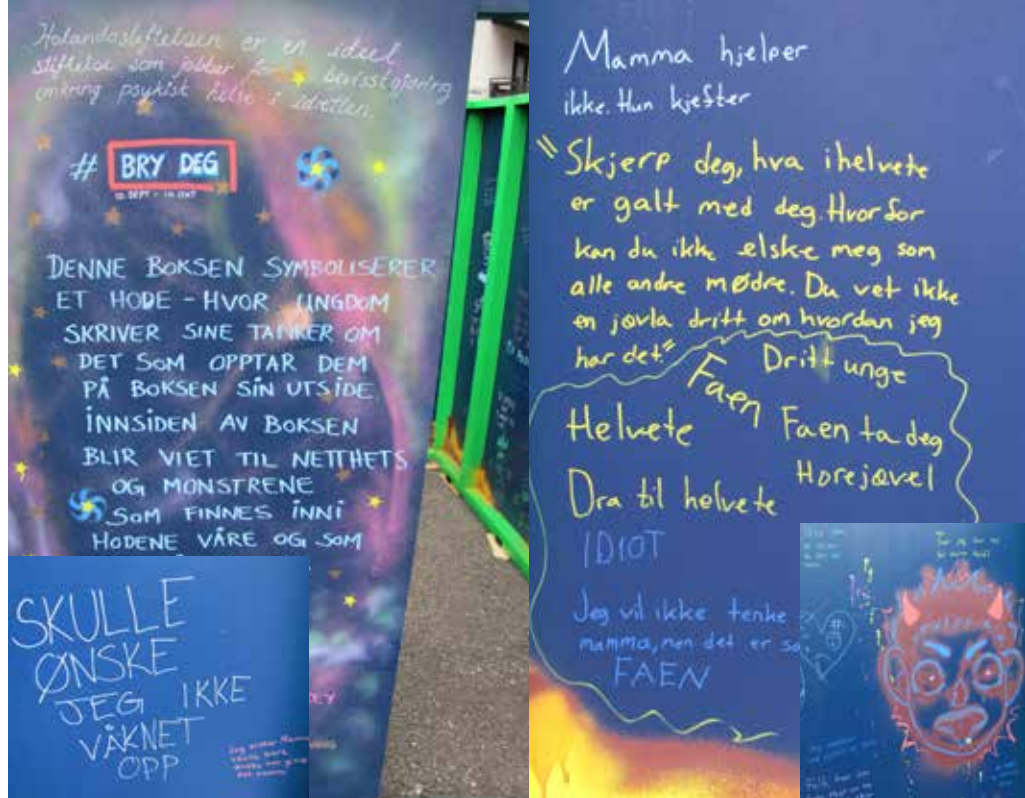 Holandastiftelsen er en ideel
stiftelse som jobber for bevisstgjøring
omkring psykisk helse i idretten.
# BRY DEG
10. SEPT - 10. OKT
DENNE BOKSEN SYMBOLISERER
ET HODE - HVOR UNGDOM
SKRIVER SINE TANKER OM
DET SOM OPPTAR DEM
PÅ BOKSEN SIN UTSIDE
INNSIDEN AV BOKSEN
BLIR VIET TIL NETTHETS
OG MONSTRENE
SOM FINNES INNI
HODENE VÅRE OG SOM
SKULLE
ØNSKE
JEG IKKE
VÅKNET
OPP
Mamma hjelper
ikke. Hun kjefter
"Skjerp deg, hva ihelvete
er galt med deg. Hvorfor
kan du ikke elske meg som
alle andre mødre. Du vet ikke
en jøvla dritt om hvordan jeg
har det."
Faen
Dritt unge
Helvete
Faen ta deg
Horejøvel
Dra til helvete
IDIOT
Jeg vil ikke tenke
mamma, men det er so
FAEN